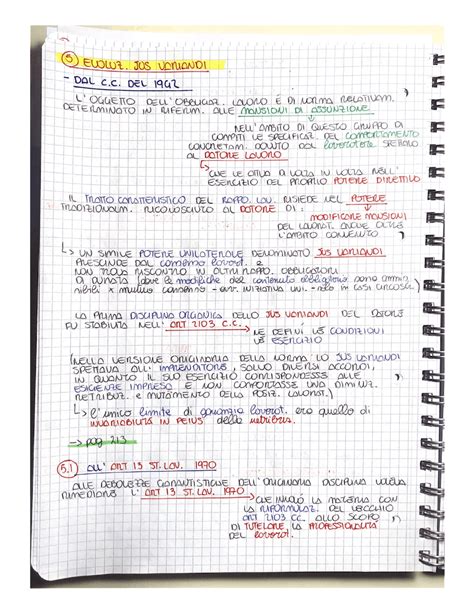 5 EVOLUZ. JUS VARIANDI
- DAL C.C. DEL 1942
L'OGGETTO DELL'OBBLIGAZ. LAVORO È DI NORMA RELATIVAM.
DETERMINATO IN RIFERIM. ALLE MANSIONI DI ASSUNZIONE
NELL'AMBITO DI QUESTO GRUPPO DI
COMPITI LE SPECIFICAZ. DEL COMPORTAMENTO
CONCRETAM. DOVUTO DAL LAVORATORE SPETTANO
AL DATORE LAVORO
CHE LE ATTUA DI VOLTA IN VOLTA NELL'
ESERCIZIO DEL PROPRIO POTERE DIRETTIVO
IL TRATTO CARATTERISTICO DEL RAPPO. LAV. RISIEDE NEL POTERE
TRADIZIONALM. RICONOSCIUTO AL DATORE DI:
MODIFICARE MANSIONI
DEL LAVORAT. ANCHE OLTRE
L'AMBITO CONVENUTO
UN SIMILE POTERE UNILATERALE DENOMINATO JUS VARIANDI
PRESCINDE DAL CONSENSO LAVORAT. E
NON TROVA RISCONTRO IN ALTRI RAPPO. OBBLIGATORI
DI DURATA (DOVE LE MODIFICHE DEL CONTENUTO OBBLIGATORIO SONO AMMIS
SIBILI X MUTUO CONSENSO - INIZIATIVA UNI. - SOLO IN CASI CIRCOSCR.)
LA PRIMA DISCIPLINA ORGANICA DELLO JUS VARIANDI DEL DATORE
FU STABILITA NELL' ART 2103 C.C.
NE DEFINÌ LE CONDIZIONI
DI ESERCIZIO
(NELLA VERSIONE ORIGINARIA DELLA NORMA LO JUS VARIANDI
SPETTAVA ALL' IMPRENDITORE, SALVO DIVERSI ACCORDI,
IN QUANTO IL SUO ESERCIZIO CORRISPONDESSE ALLE
ESIGENZE IMPRESA E NON COMPORTASSE UNA DIMINUZ.
RETRIBUZ. E MUTAMENTO DELLA POSIZ. LAVORAT.)
L'UNICO LIMITE DI GARANZIA LAVORAT. ERA QUELLO DI
INVARIABILITÀ IN PEIUS DELLA RETRIBUZ.
→ pag 213
5.1 ALL' ART 13 ST. LAV. 1970
ALLE DEBOLEZZE GARANTISTICHE DELL'ORIGINARIA DISCIPLINA VOLLE
RIMEDIARE L'ART 13 ST. LAV. 1970
CHE INNOVÒ LA MATERIA CON
LA RIFORMULAZ. DEL VECCHIO
ART 2103 CC. ALLO SCOPO
DI TUTELARE LA PROFESSIONALITÀ
DEL LAVORAT.